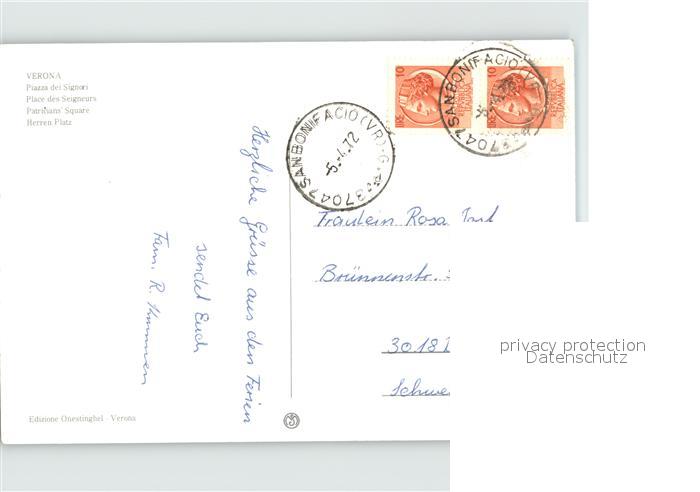 VERONA
Piazza dei Signori
Place des Seigneurs
Patricians' Square
Herren Platz
Herzliche Grüsse aus den Ferien
sendet Euch
Fam. R.
Edizione Onestinghel - Verona
SANBONIFACIO (VR)-G.
37047
5.4.72
10
LIRE
10
LIRE
SANBONIFACIO (VR
37047
Fräulein Rosa
Brünnenstr.
3018
Schwe
privacy protection
Datenschutz